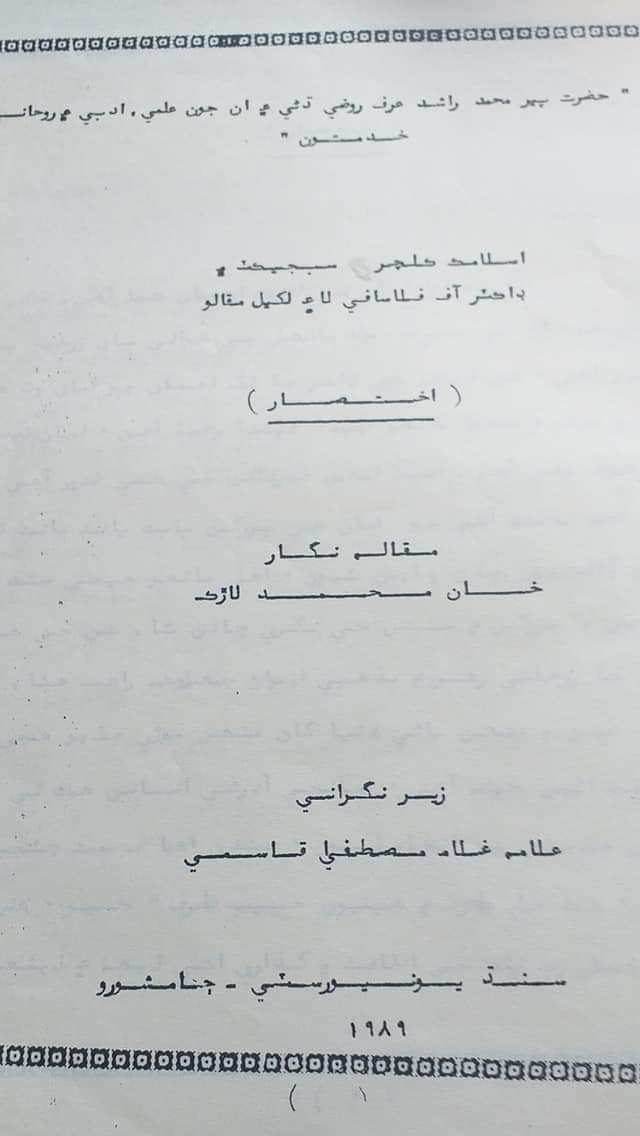 " حضرت پير محمد راشد عرف روضي ڌڻي ۽ ان جون علمي، ادبي ۽ روحاني
خدمتون "
اسلامڪ ڪلچر سبجيڪٽ ۾
ڊاڪٽر آف فلاسافي لاءِ لکيل مقالو
( اختصار )
مقالہ نگار
خان محمد لاڙڪ
زير نگراني
علامہ غلام مصطفيٰ قاسمي
سنڌ يونيورسٽي - ڄامشورو
۱۹۸۹
( ۱ )